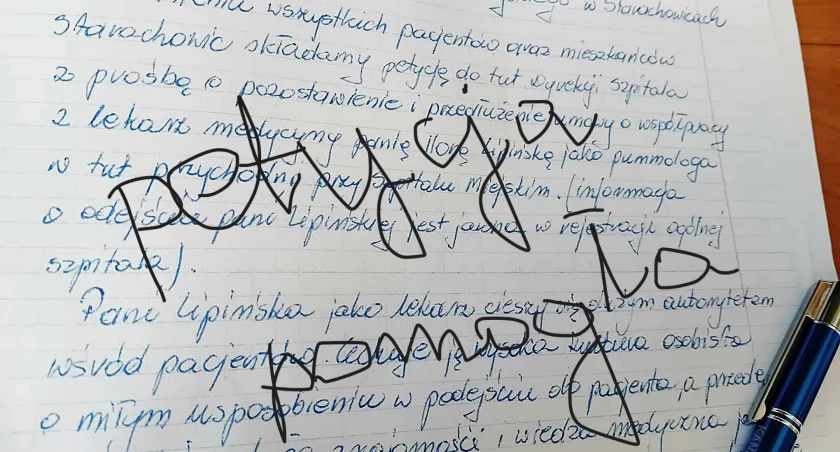 wszystkich pacjentów oraz mieszkańców w Starachowicach
Starachowic składamy petycję do tut dyrekcji szpitala
z prośbą o pozostawienie i przedłużenie umowy o współpracy
z lekarz medycyny panią Iloną Lipińską jako pumologa
w tut przychodni przy Szpitalu Miejskim. (informacja
o odejściu pani Lipińskiej jest jawna w rejestracji ogólnej
szpitala).
Pani Lipińska jako lekarz cieszy się dużym autorytetem
wśród pacjentów. Cechuje ją wysoka kultura osobista
o miłym usposobieniu w podejściu do pacjenta, a przede
znajomości i wiedza medyczna
petycja
pomogła